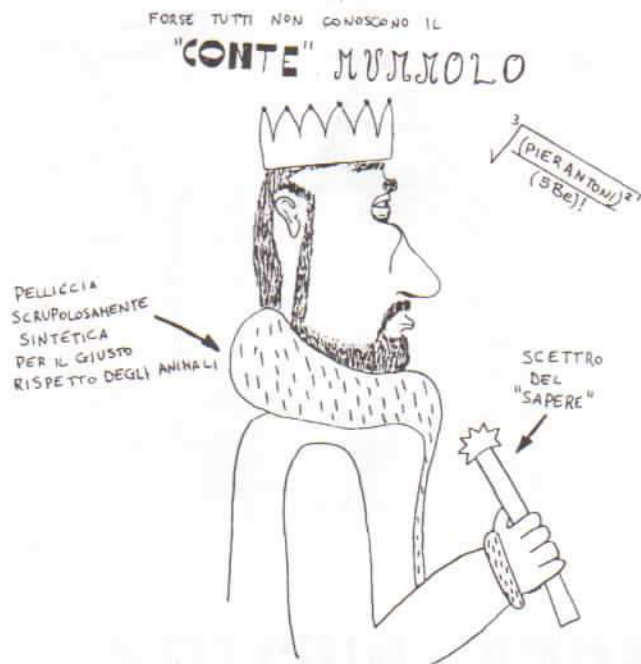 FORSE TUTTI NON CONOSCONO IL
"CONTE" MUMMOLO
3
(PIERANTONI)²
(5Be)!
PELLICCIA
SCRUPOLOSAMENTE
SINTETICA
PER IL GIUSTO
RISPETTO DEGLI ANIMALI
SCETTRO
DEL
"SAPERE"